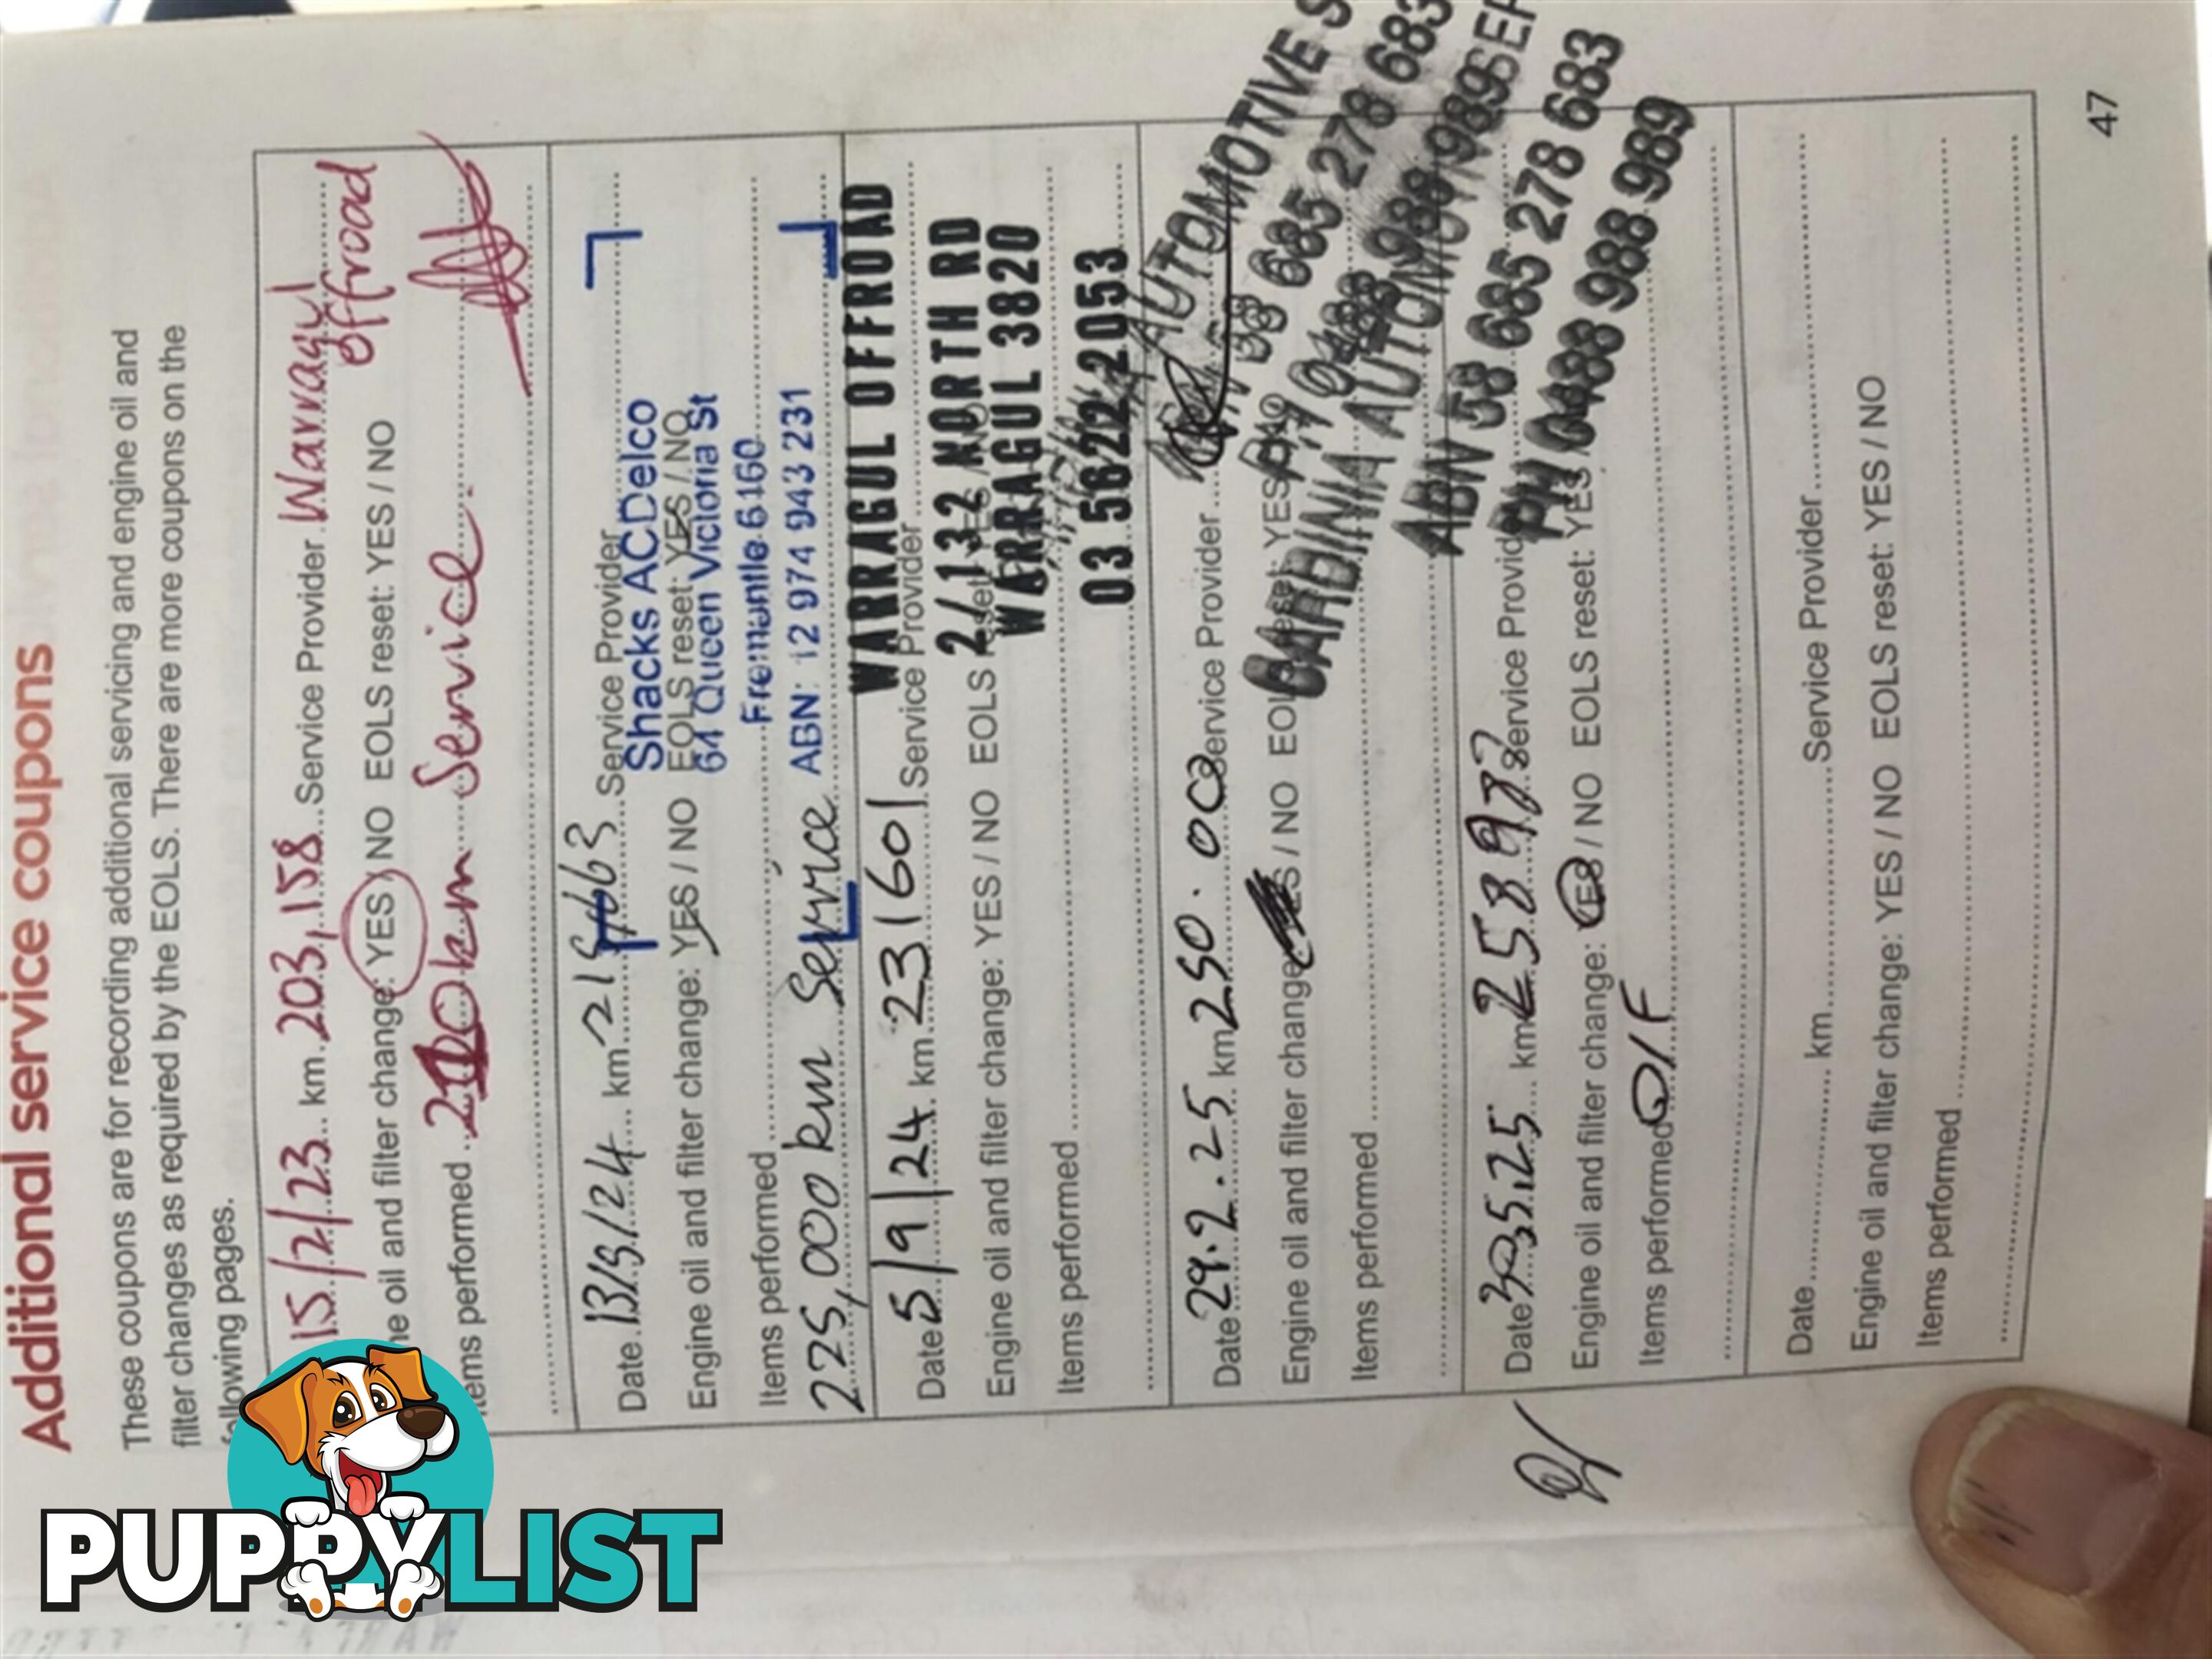 Additional service coupons
These coupons are for recording additional servicing and engine oil and
filter changes as required by the EOLS. There are more coupons on the
following pages.
15/2/23 km 203,158 Service Provider Warragul
offroad
ne oil and filter change: YES / NO EOLS reset: YES / NO
Items performed km Service
Date 13/9/24 km Service Provider
Shacks ACDelco
Engine oil and filter change: YES / NO EOLS reset: YES / NO
64 Queen Victoria St
Fremantle 6160
Items performed
225,000 km Service ABN: 12 974 943 231
WARRAGUL OFFROAD
Date 5/9/24 km 231601 Service Provider
2/132 NORTH RD
Engine oil and filter change: YES / NO EOLS reset
WARAGUL 3820
Items performed
03 5622 2053
AUTOMOTIVE S
Date 29.2.25 km 250.000 Service Provider
58 685 278 683
Engine oil and filter change YES / NO EOLS reset: YES
0488 988 989
BARDINIA AUTOMOTIVE SER
Items performed
ABN 58 685 278 683
PH 0488 988 989
Date 30.5.25 km Service Provid
Engine oil and filter change: YES / NO EOLS reset: YES
Items performed O/F
Date km Service Provider
Engine oil and filter change: YES / NO EOLS reset: YES / NO
Items performed
47
PUPPYLIST